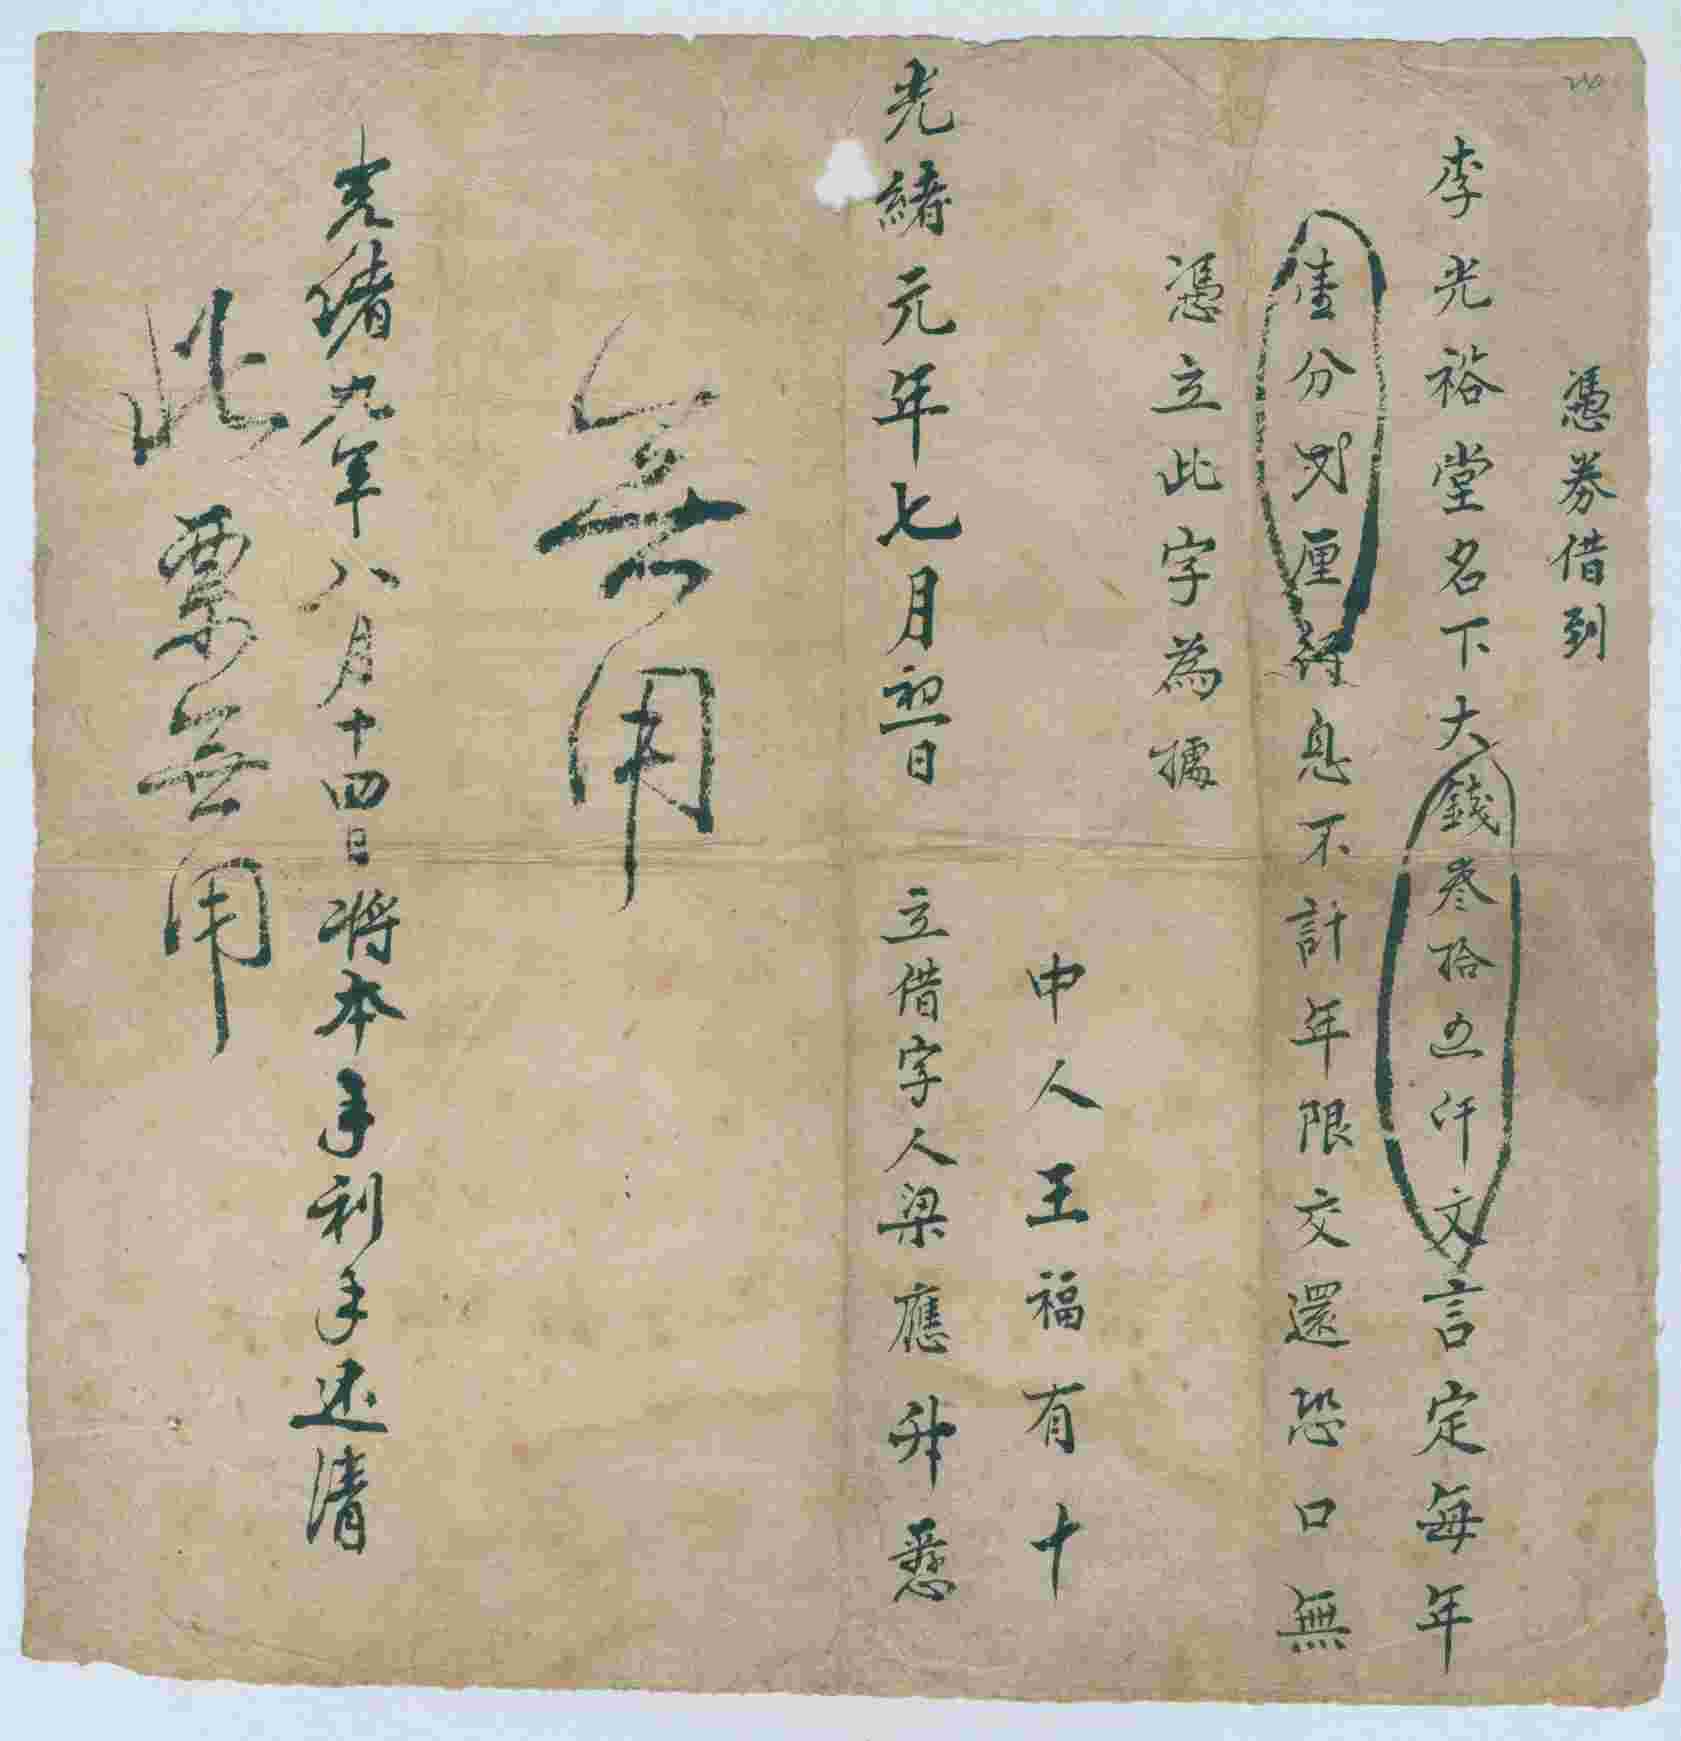 憑券借到
李光裕堂名下大錢叄拾五仟文言定每年
壹分捌厘行息不計年限交還恐口無
憑立此字為據
中人王福有十
光緒元年七月初一日 立借字人梁應升悬
無用
光緒九年八月十四日將本手利手还清
此票無用